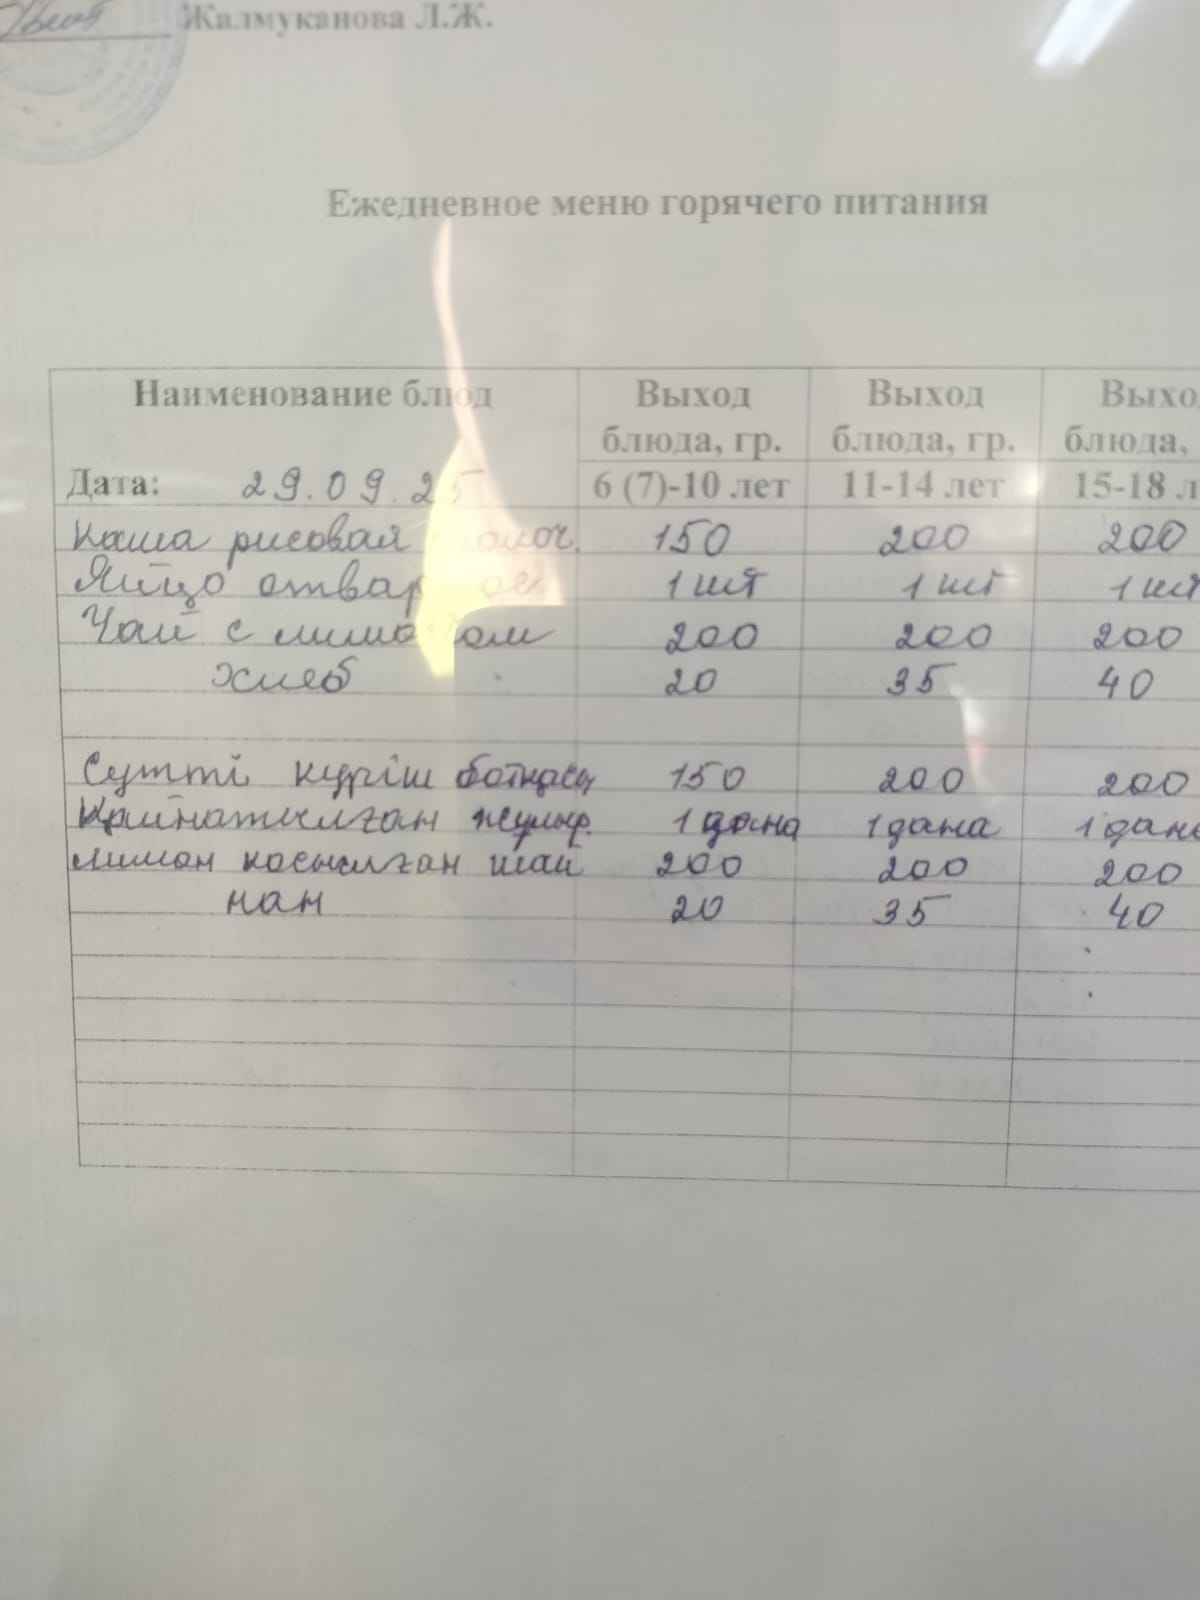 Жалмуканова Л.Ж.
Ежедневное меню горячего питания
Наименование блюд Выход блюда, гр. Выход блюда, гр. Выхо блюда,
Дата: 29.09.25 6 (7)-10 лет 11-14 лет 15-18 л
Каша рисовая молоч. 150 200 200
Яйцо отварное 1 шт 1 шт 1 шт
Чай с лимоном 200 200 200
Хлеб 20 35 40
Сүтті күріш ботқасы 150 200 200
Қайнатылған жұмыр. 1 дана 1 дана 1 дана
лимон қосылған шай 200 200 200
нан 20 35 40